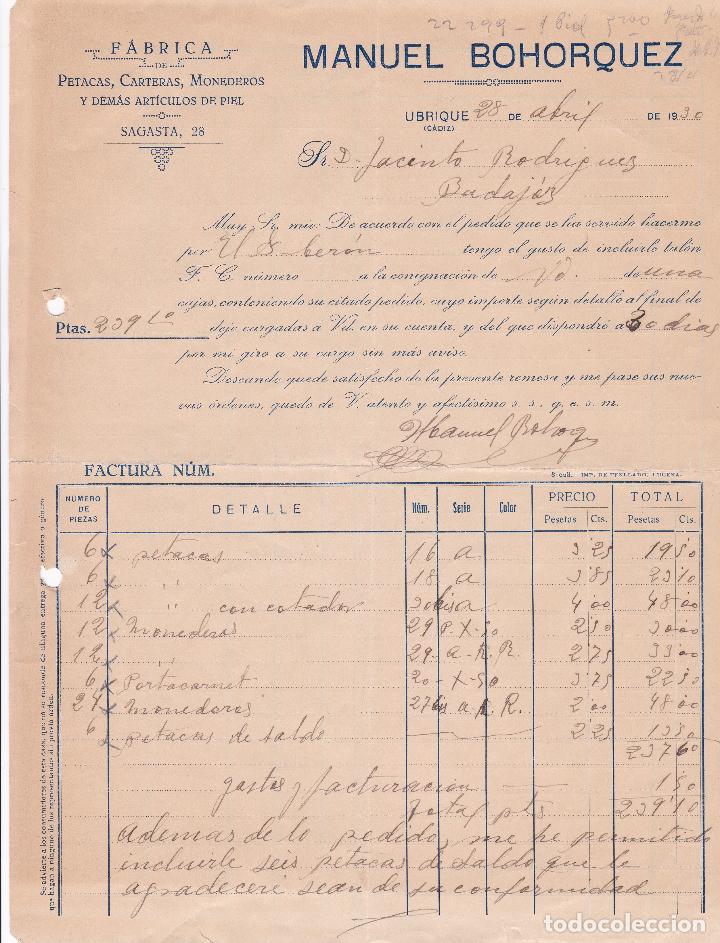 22 299 - 1 Bid 5'00
FÁBRICA
DE
PETACAS, CARTERAS, MONEDEROS
Y DEMÁS ARTÍCULOS DE PIEL
SAGASTA, 28
MANUEL BOHORQUEZ
UBRIQUE 28 DE abril DE 1930
(CÁDIZ)
Sr. D. Jacinto Rodriguez
Badajóz
Muy Sr. mio: De acuerdo con el pedido que se ha servido hacerme
por El S. Cerón tengo el gusto de incluirle talón
F. C. número a la consignación de Vd. de una
cajas, conteniendo su citado pedido, cuyo importe según detalle al final de
Ptas. 239 10 dejo cargadas a Vd. en su cuenta, y del que dispondré a 30 dias
por mi giro a su cargo sin más aviso.
Deseando quede satisfecho de la presente remesa y me pase sus nue-
vas órdenes, quedo de V. atento y afectísimo s. s. q. e. s. m.
Manuel Bohoq
FACTURA NÚM.
IMP. DE TENLLADO, LUCENA.
NÚMERO DE PIEZAS DETALLE Núm. Serie Color PRECIO TOTAL
Pesetas Cts. Pesetas Cts.
6 petacas 16 a 3'25 19'50
6 " 18 a 3'85 23'10
12 " con cotador 30bis a 4'00 48'00
12 Monederos 29 P. X-50 2'50 30'00
12 " 29 - a - R. R. 2'75 33'00
6 Portacarnet 20 - X-50 3'75 22'50
24 Monederos 27bis a R R. 2'00 48'00
6 petacas de saldo 2'25 13'50
237'60
gastos y facturación 1'50
Total pts 239'10
Ademas de lo pedido, me he permitido
incluirle seis petacas de saldo que le
agradeceré sean de su conformidad
Se advierte a los consumidores de esta casa, que no se responde de ninguna entrega en efectivo o género
que hagan a ninguno de los representantes sin previo aviso.
todocoleccion